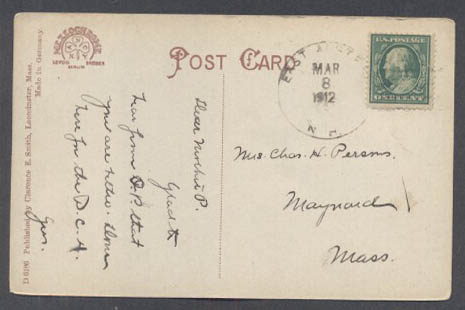 MEZZOCHROME
LEIPZIG DRESDEN
BERLIN
POST CARD
D 6196 Published by Clarence E. Smith, Leominster, Mass.
Made in Germany.
Dear Mother P.
Glad to
hear from that
you are better. Home
here for the D. C. H.
Geo.
EAST
MAR
8
1912
N. H.
U.S. POSTAGE
ONE CENT
Mrs. Chas. H. Persons,
Maynard
Mass.